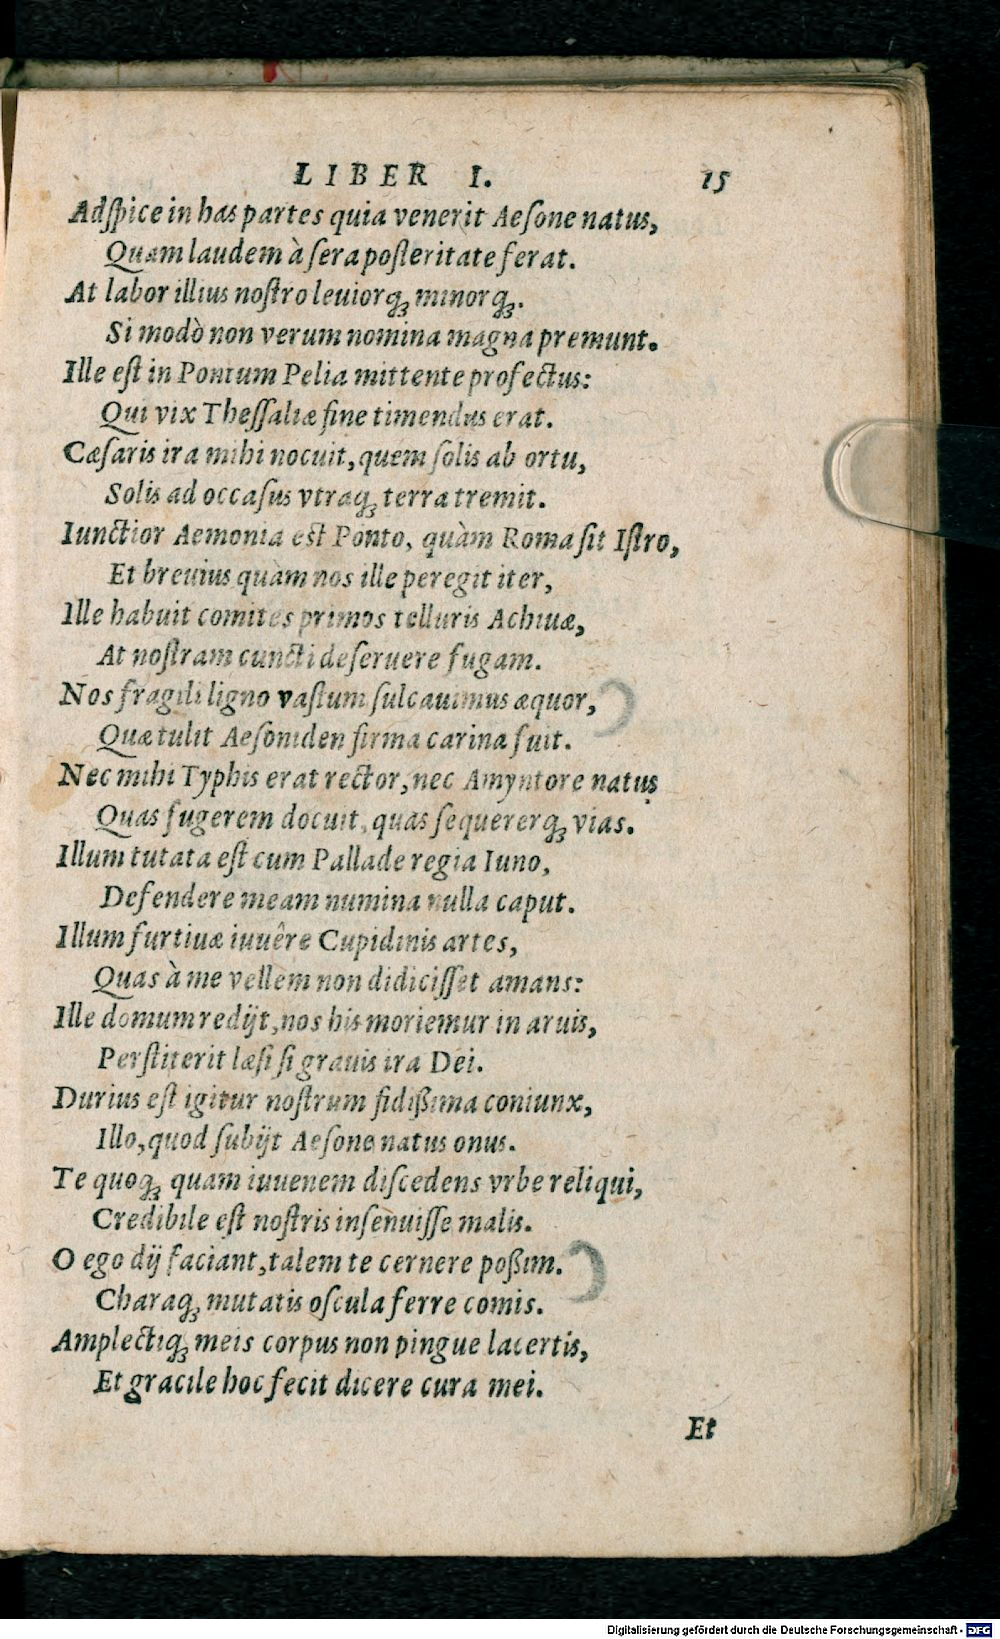 LIBER I. 15
Adſpice in has partes quia venerit Aeſone natus,
Quam laudem à ſera poſteritate ferat.
At labor illius noſtro leuiorq́ꝫ minorq́ꝫ.
Si modò non verum nomina magna premunt.
Ille eſt in Pontum Pelia mittente profectus:
Qui vix Theſſaliæ fine timendus erat.
Cæſaris ira mihi nocuit, quem ſolis ab ortu,
Solis ad occaſus vtraq́ꝫ terra tremit.
Iunctior Aemonia eſt Ponto, quàm Roma ſit Iſtro,
Et breuius quàm nos ille peregit iter,
Ille habuit comites primos telluris Achiuæ,
At noſtram cuncti deſeruere fugam.
Nos fragili ligno vaſtum ſulcauimus æquor,
Quæ tulit Aeſoniden firma carina fuit.
Nec mihi Typhis erat rector, nec Amyntore natus
Quas fugerem docuit, quas ſequererq́ꝫ vias.
Illum tutata eſt cum Pallade regia Iuno,
Defendere meam numina nulla caput.
Illum furtiuæ iuuêre Cupidinis artes,
Quas à me vellem non didiciſſet amans:
Ille domum redijt, nos his moriemur in aruis,
Perſtiterit læſi ſi grauis ira Dei.
Durius eſt igitur noſtrum fidißima coniunx,
Illo, quod ſubijt Aeſone natus onus.
Te quoq́ꝫ quam iuuenem diſcedens vrbe reliqui,
Credibile eſt noſtris inſenuiſſe malis.
O ego dij faciant, talem te cernere poßim.
Charaq́ꝫ mutatis oſcula ferre comis.
Amplectiq́ꝫ meis corpus non pingue lacertis,
Et gracile hoc fecit dicere cura mei.
Et
Digitalisierung gefördert durch die Deutsche Forschungsgemeinschaft - DFG